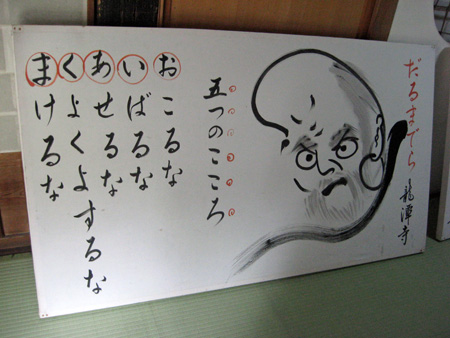 だるまでら 龍潭寺
五つのこころ
おこるな
いばるな
あせるな
くよくよするな
まけるな